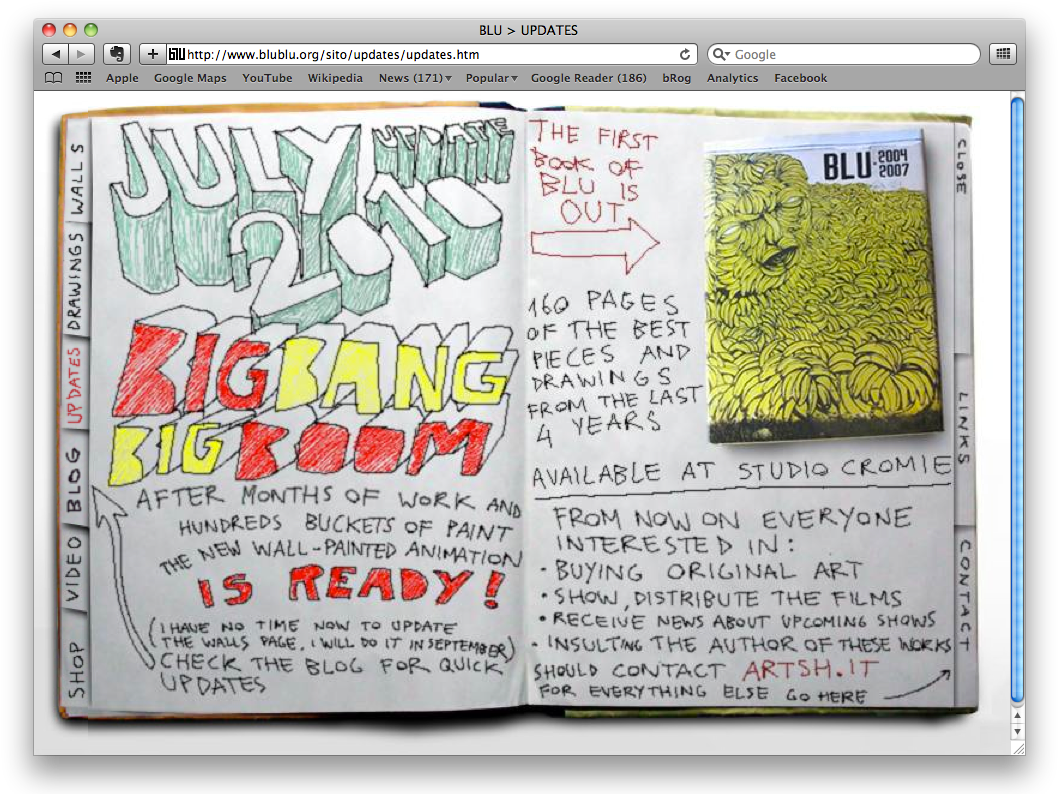 BLU > UPDATES
blu http://www.blublu.org/sito/updates/updates.htm
Google
Apple Google Maps YouTube Wikipedia News (171) Popular Google Reader (186) bRog Analytics Facebook
WALLS
DRAWINGS
UPDATES
BLOG
VIDEO
SHOP
JULY UPDATE
2010
BIG BANG
BIG BOOM
AFTER MONTHS OF WORK AND
HUNDREDS BUCKETS OF PAINT
THE NEW WALL-PAINTED ANIMATION
IS READY!
(I HAVE NO TIME NOW TO UPDATE
THE WALLS PAGE, I WILL DO IT IN SEPTEMBER)
CHECK THE BLOG FOR QUICK
UPDATES
THE FIRST
BOOK OF
BLU IS
OUT
BLU 2004
2007
160 PAGES
OF THE BEST
PIECES AND
DRAWINGS
FROM THE LAST
4 YEARS
AVAILABLE AT STUDIO CROMIE
FROM NOW ON EVERYONE
INTERESTED IN:
• BUYING ORIGINAL ART
• SHOW, DISTRIBUTE THE FILMS
• RECEIVE NEWS ABOUT UPCOMING SHOWS
• INSULTING THE AUTHOR OF THESE WORKS
SHOULD CONTACT ARTSH.IT
FOR EVERYTHING ELSE GO HERE
CLOSE
LINKS
CONTACT